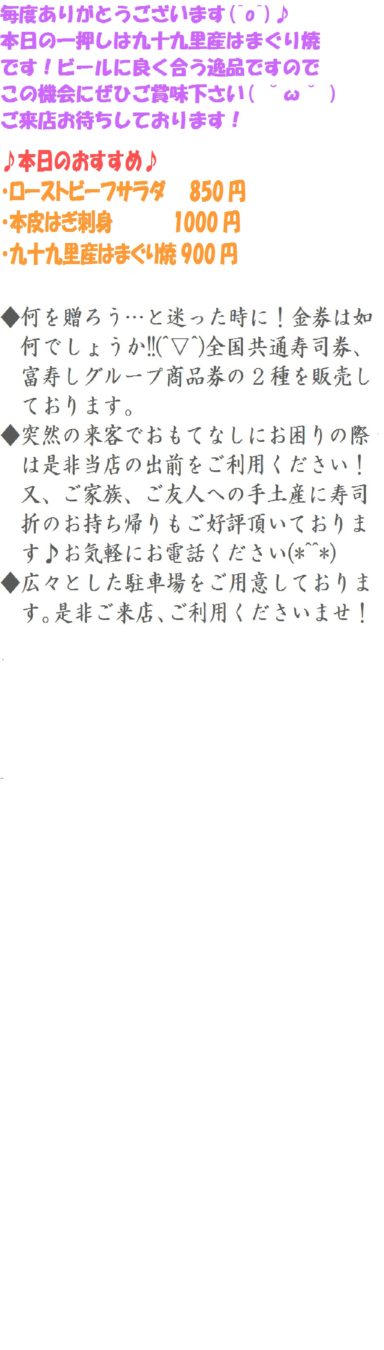 毎度ありがとうございます(^o^)♪
本日の一押しは九十九里産はまぐり焼
です！ビールに良く合う逸品ですので
この機会にぜひご賞味下さい( ˘ω˘ )
ご来店お待ちしております！
♪本日のおすすめ♪
・ローストビーフサラダ 850円
・本皮はぎ刺身 1000円
・九十九里産はまぐり焼 900円
◆何を贈ろう…と迷った時に！金券は如
何でしょうか!!(^▽^)全国共通寿司券、
富寿しグループ商品券の２種を販売し
ております。
◆突然の来客でおもてなしにお困りの際
は是非当店の出前をご利用ください！
又、ご家族、ご友人への手土産に寿司
折のお持ち帰りもご好評頂いておりま
す♪お気軽にお電話ください(*^^*)
◆広々とした駐車場をご用意しておりま
す。是非ご来店、ご利用くださいませ！